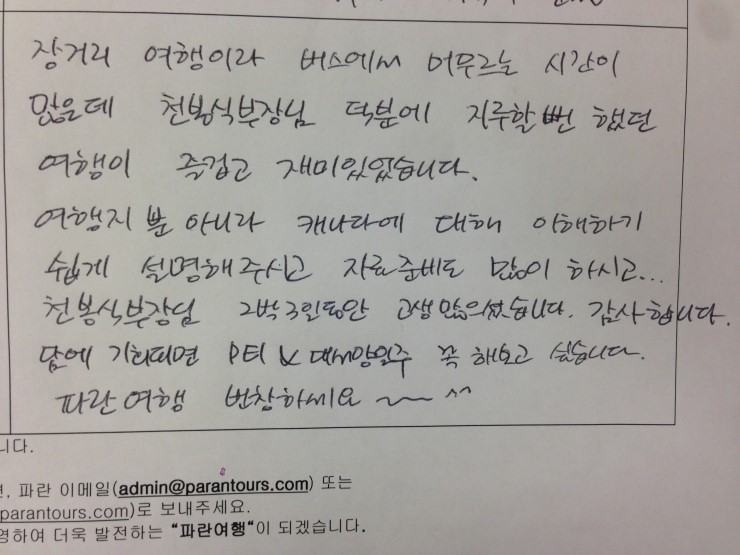 장거리 여행이라 버스에서 머무르는 시간이
많은데 천봉식부장님 덕분에 지루할뻔 했던
여행이 즐겁고 재미있었습니다.
여행지 뿐 아니라 캐나다에 대해 이해하기
쉽게 설명해주시고 자료준비도 많이 하시고...
천봉식부장님 2박3일동안 고생많으셨습니다. 감사합니다.
담에 기회되면 PEI & 대서양일주 꼭 해보고 싶습니다.
파란여행 번창하세요 ~~ ^^
니다.
파란 이메일(admin@parantours.com) 또는
parantours.com)로 보내주세요.
영하여 더욱 발전하는 "파란여행"이 되겠습니다.